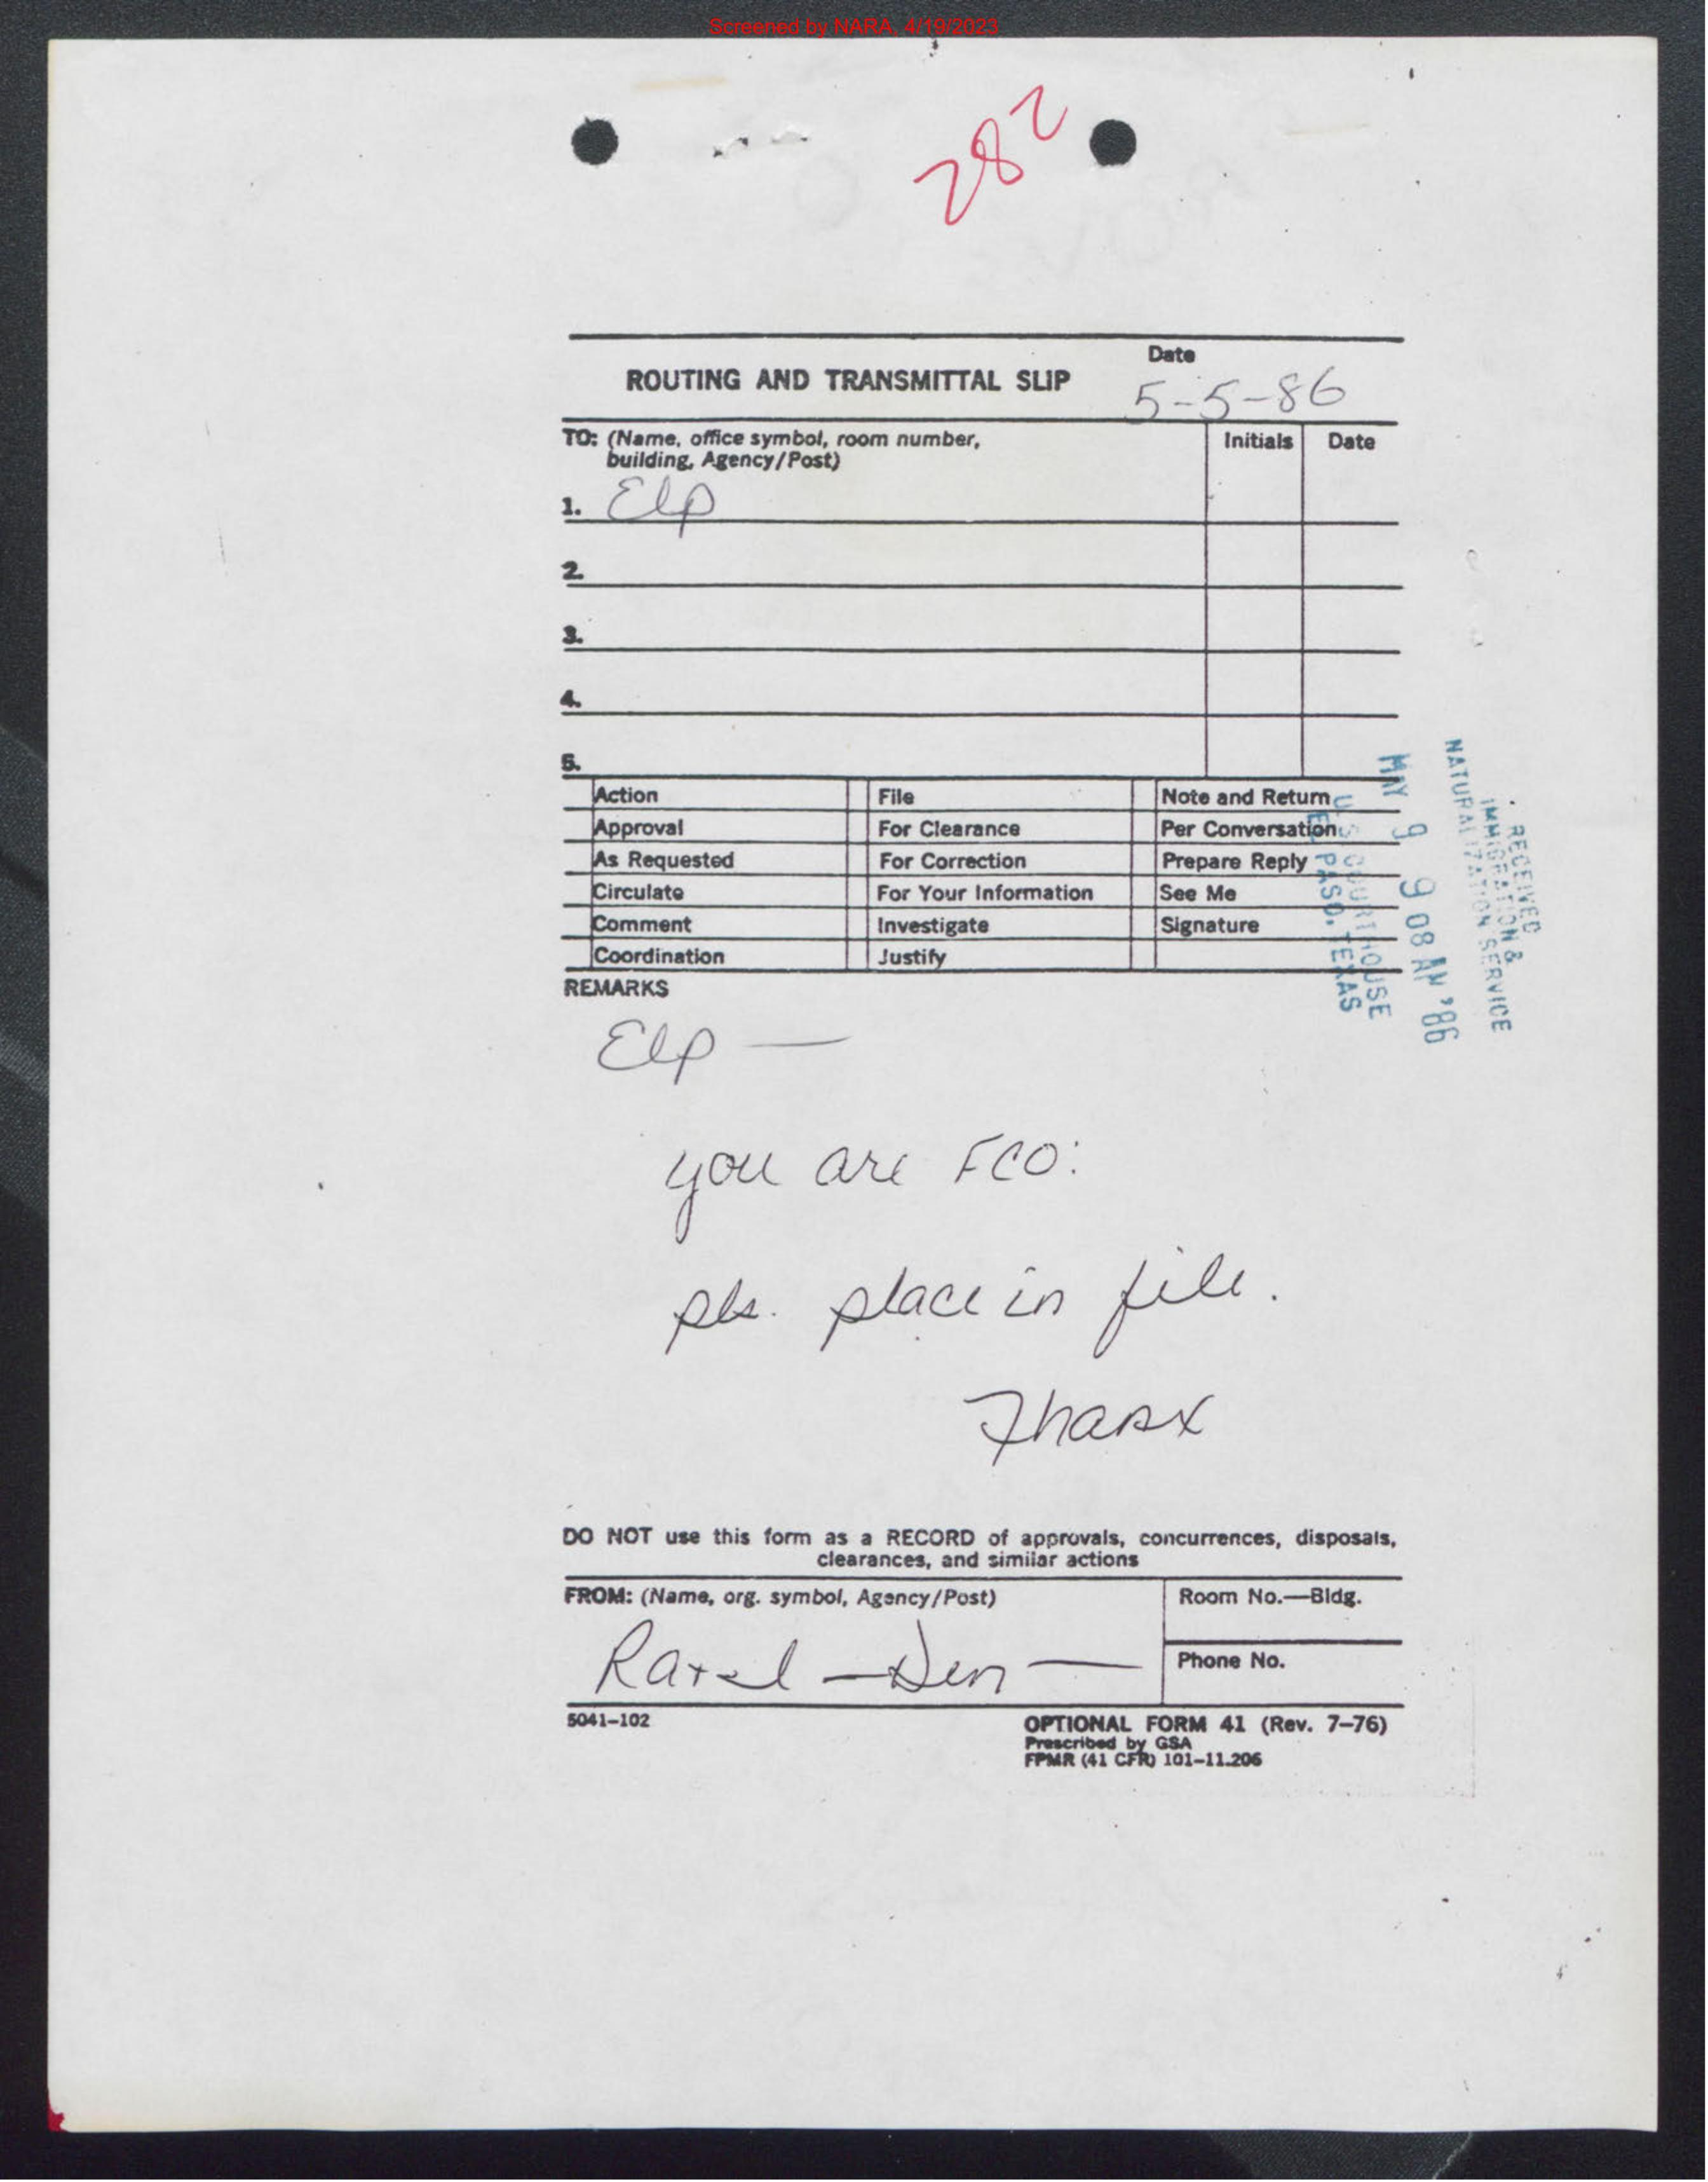 Screened by NARA, 4/19/2023
282
ROUTING AND TRANSMITTAL SLIP
Date
5-5-86
TO: (Name, office symbol, room number,
building, Agency/Post)
Initials
Date
1. Elp
2.
3.
4.
5.
Action File Note and Return
Approval For Clearance Per Conversation
As Requested For Correction Prepare Reply
Circulate For Your Information See Me
Comment Investigate Signature
Coordination Justify
RECEIVED
IMMIGRATION &
NATURALIZATION SERVICE
MAY 9 9 08 AM '86
U.S. COURTHOUSE
EL PASO, TEXAS
REMARKS
Elp —
you are FCO:
pls. place in file.
Thanx
DO NOT use this form as a RECORD of approvals, concurrences, disposals,
clearances, and similar actions
FROM: (Name, org. symbol, Agency/Post)
Room No.—Bldg.
— Den —
Phone No.
5041-102
OPTIONAL FORM 41 (Rev. 7-76)
Prescribed by GSA
FPMR (41 CFR) 101-11.206